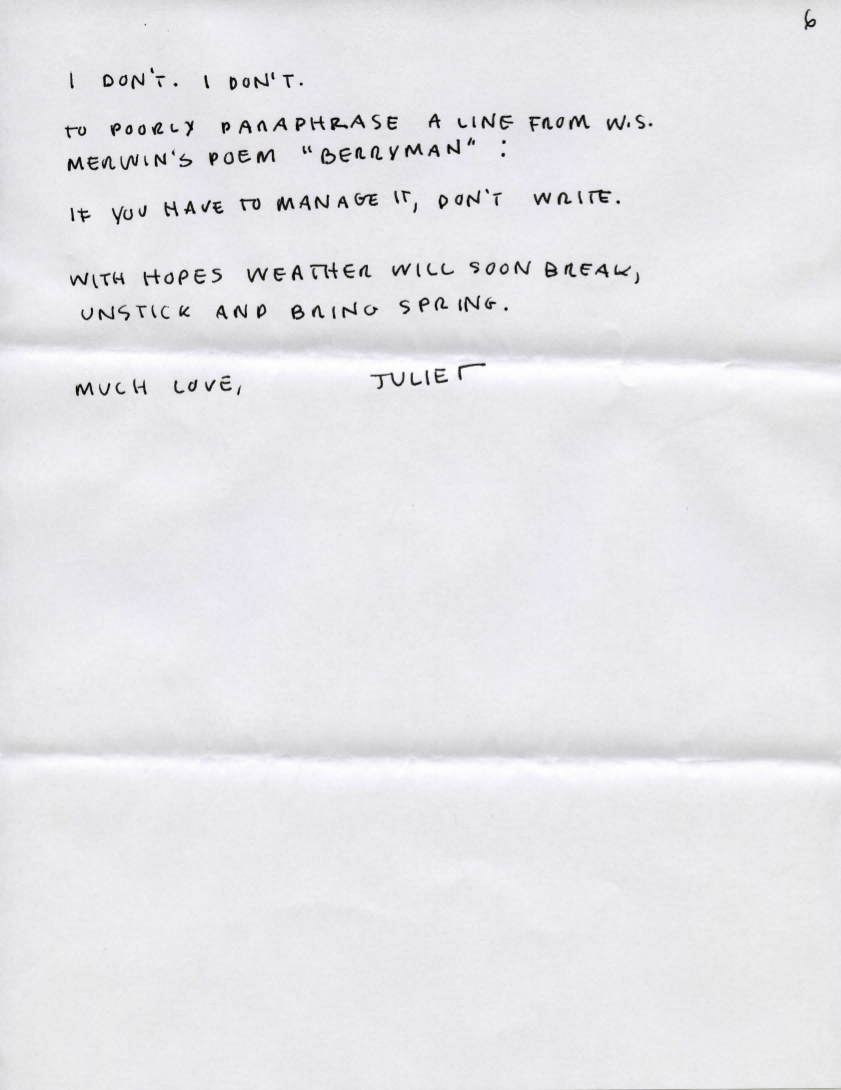 6
I DON'T. I DON'T.
TO POORLY PARAPHRASE A LINE FROM W.S.
MERWIN'S POEM "BERRYMAN":
IF YOU HAVE TO MANAGE IT, DON'T WRITE.
WITH HOPES WEATHER WILL SOON BREAK,
UNSTICK AND BRING SPRING.
MUCH LOVE, JULIET